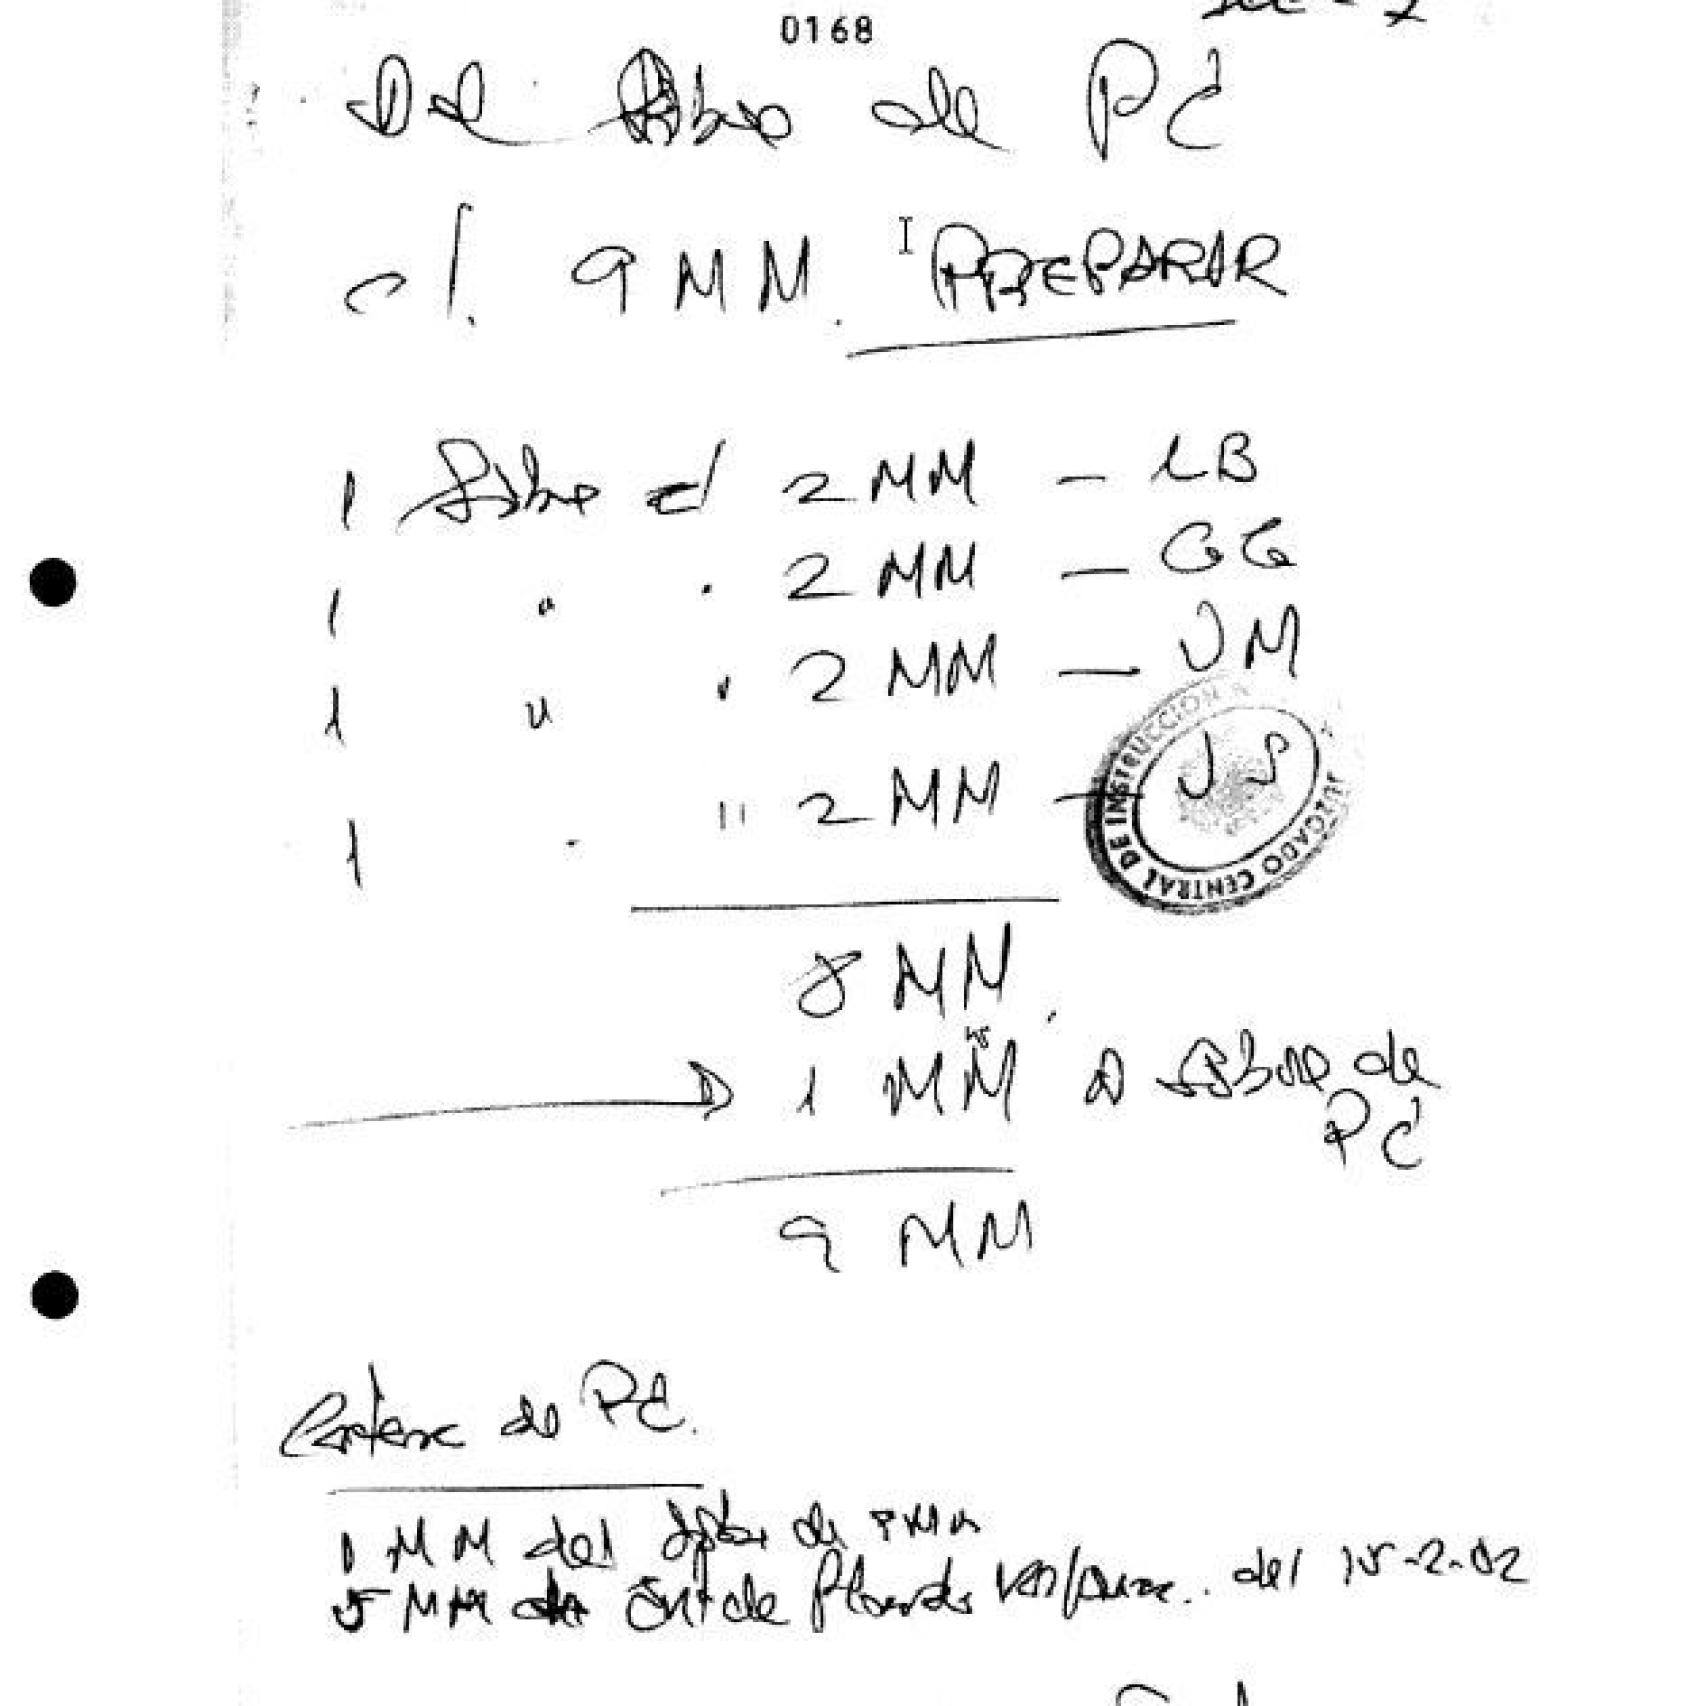 0168
Del Sobre de PC
c/. 9 MM. PREPARAR
1 Sobre c/ 2 MM - LB
1 " . 2 MM - GG
1 " " 2 MM - JM
JUZGADO CENTRAL DE INSTRUCCION
1 " " 2 MM - JS
8 MM.
1 MM a Sobre de
PC
9 MM
Cartera de PC.
1 MM del de
5 MM de del 15-2-02